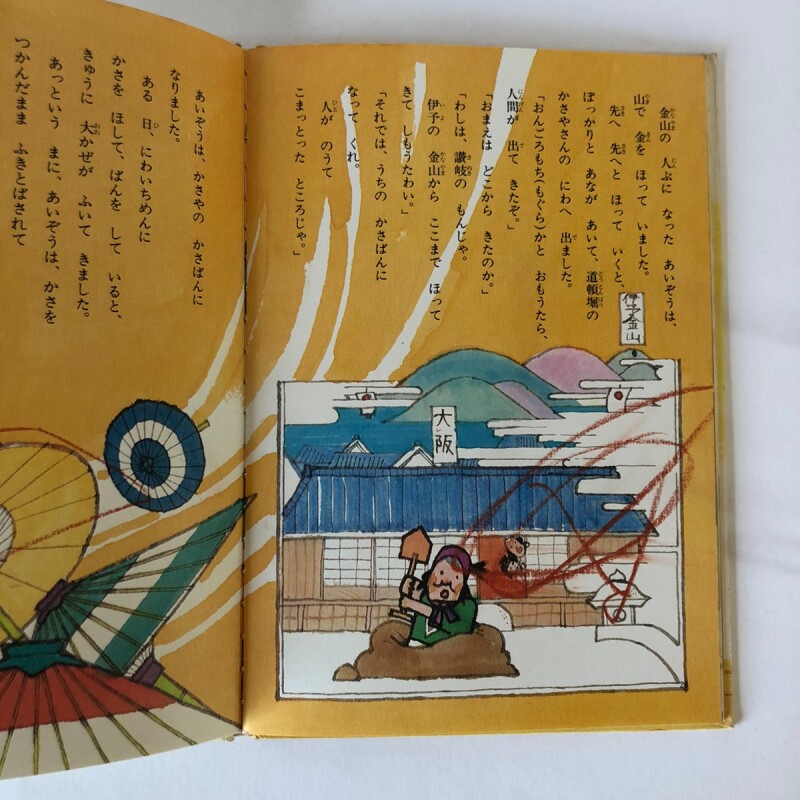 金山の 人ぷに なった あいぞうは、
山で 金を ほって いました。
先へ 先へと ほって いくと、
ぽっかりと あなが あいて、道頓堀の
かさやさんの にわへ 出ました。
「おんごろもち(もぐら)かと おもうたら、
人間が 出て きたぞ。」
「おまえは どこから きたのか。」
「わしは、讃岐の もんじゃ。
伊予の 金山から ここまで ほって
きて しもうたわい。」
「それでは、うちの かさばんに
なって くれ。
人が のうて
こまっとった ところじゃ。」
伊予金山
大阪
あいぞうは、かさやの かさばんに
なりました。
ある 日、にわいちめんに
かさを ほして、ばんを して いると、
きゅうに 大かぜが ふいて きました。
あっという まに、あいぞうは、かさを
つかんだまま ふきとばされて